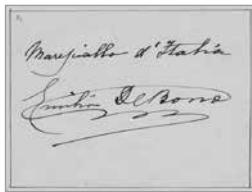 Maresciallo d'Italia
Emilio De Bono